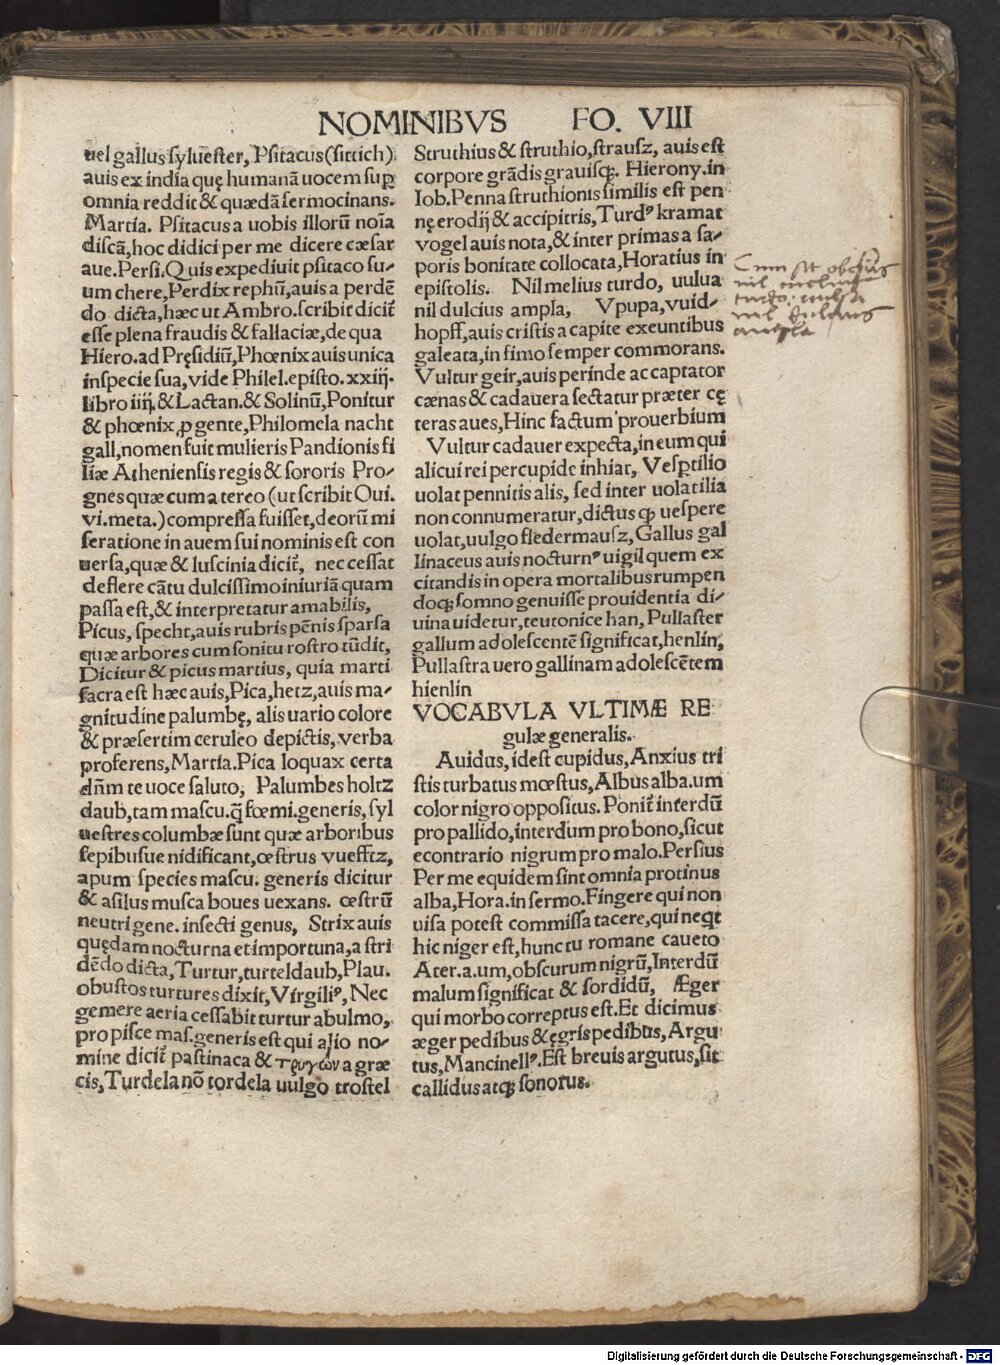 NOMINIBVS FO. VIII
uel gallus syluester, Psitacus(sittich)
auis ex india quę humanā uocem sup
omnia reddit & quædā sermocinans.
Martia. Psitacus a uobis illorū noīa
discā, hoc didici per me dicere cæsar
aue. Persi. Quis expediuit psitaco su⸗
um chere, Perdix rephū, auis a perdē
do dicta, hæc ut Ambro. scribit dicit̄
esse plena fraudis & fallaciæ, de qua
Hiero. ad Pręsidiū, Phœnix auis unica
inspecie sua, vide Philel. episto. xxiij.
libro iiij. & Lactan. & Solinū, Ponitur
& phœnix ꝓ gente, Philomela nacht
gall, nomen fuit mulieris Pandionis fi
liæ Atheniensis regis & sororis Pro⸗
gnes quæ cum a tereo (ut scribit Oui.
vi. meta.) compressa fuisset, deorū mi
seratione in auem sui nominis est con
uersa, quæ & luscinia dicit̄, nec cessat
deflere cātu dulcissimo iniuriā quam
passa est, & interpretatur amabilis,
Picus, specht, auis rubris pēnis sparsa
quæ arbores cum sonitu rostro tūdit,
Dicitur & picus martius, quia marti
sacra est hæc auis, Pica, hetz, auis ma⸗
gnitudine palumbę, alis uario colore
& præsertim ceruleo depictis, verba
proferens, Martia. Pica loquax certa
dn̄m te uoce saluto, Palumbes holtz
daub, tam mascu. q̄ fœmi. generis, syl
uestres columbæ sunt quæ arboribus
sepibusue nidificant, œstrus vuefftz,
apum species mascu. generis dicitur
& asilus musca boues uexans. œstrū
neutri gene. insecti genus, Strix auis
quędam nocturna et importuna, a stri
dēdo dicta, Turtur, turteldaub, Plau.
obustos turtures dixit, Virgiliꝰ, Nec
gemere aeria cessabit turtur abulmo,
pro pisce mas. generis est qui alio no⸗
mine dicit̄ pastinaca & τρυγὼν a græ
cis, Turdela nō tordela uulgo trostel
Struthius & struthio, strausz, auis est
corpore grādis grauisq;. Hierony. in
Iob. Penna struthionis similis est pen
nę erodij & accipitris, Turdꝰ kramat
vogel auis nota, & inter primas a sa⸗
poris bonitate collocata, Horatius in
epistolis. Nil melius turdo, uulua
nil dulcius ampla, Vpupa, vuid⸗
hopff, auis cristis a capite exeuntibus
galeata, in fimo semper commorans.
Vultur geir, auis perinde ac captator
cænas & cadauera sectatur præter cę
teras aues, Hinc factum prouerbium
Vultur cadauer expecta, in eum qui
alicui rei percupide inhiat, Vesptilio
uolat pennitis alis, sed inter uolatilia
non connumeratur, dictus q; uespere
uolat, uulgo fledermausz, Gallus gal
linaceus auis nocturnꝰ uigil quem ex
citandis in opera mortalibus rumpen
doq; somno genuisse prouidentia di⸗
uina uidetur, teutonice han, Pullaster
gallum adolescentē significat, henlin,
Pullastra uero gallinam adolescētem
hienlin
VOCABVLA VLTIMÆ RE
gulæ generalis.
Auidus, idest cupidus, Anxius tri
stis turbatus mœstus, Albus alba.um
color nigro oppositus. Ponit̄ interdū
pro pallido, interdum pro bono, sicut
econtrario nigrum pro malo. Persius
Per me equidem sint omnia protinus
alba, Hora. in sermo. Fingere qui non
uisa potest commissa tacere, qui neqt
hic niger est, hunc tu romane caueto
Ater.a.um, obscurum nigrū, Interdū
malum significat & sordidū, Æger
qui morbo correptus est. Et dicimus
æger pedibus & ęgris pedibus, Argu
tus, Mancinellꝰ. Est breuis argutus, sit
callidus atq; sonorus.
Cum sit obesus
nil melius
turdo: vulua
nil dulcius
ampla
Digitalisierung gefördert durch die Deutsche Forschungsgemeinschaft - DFG